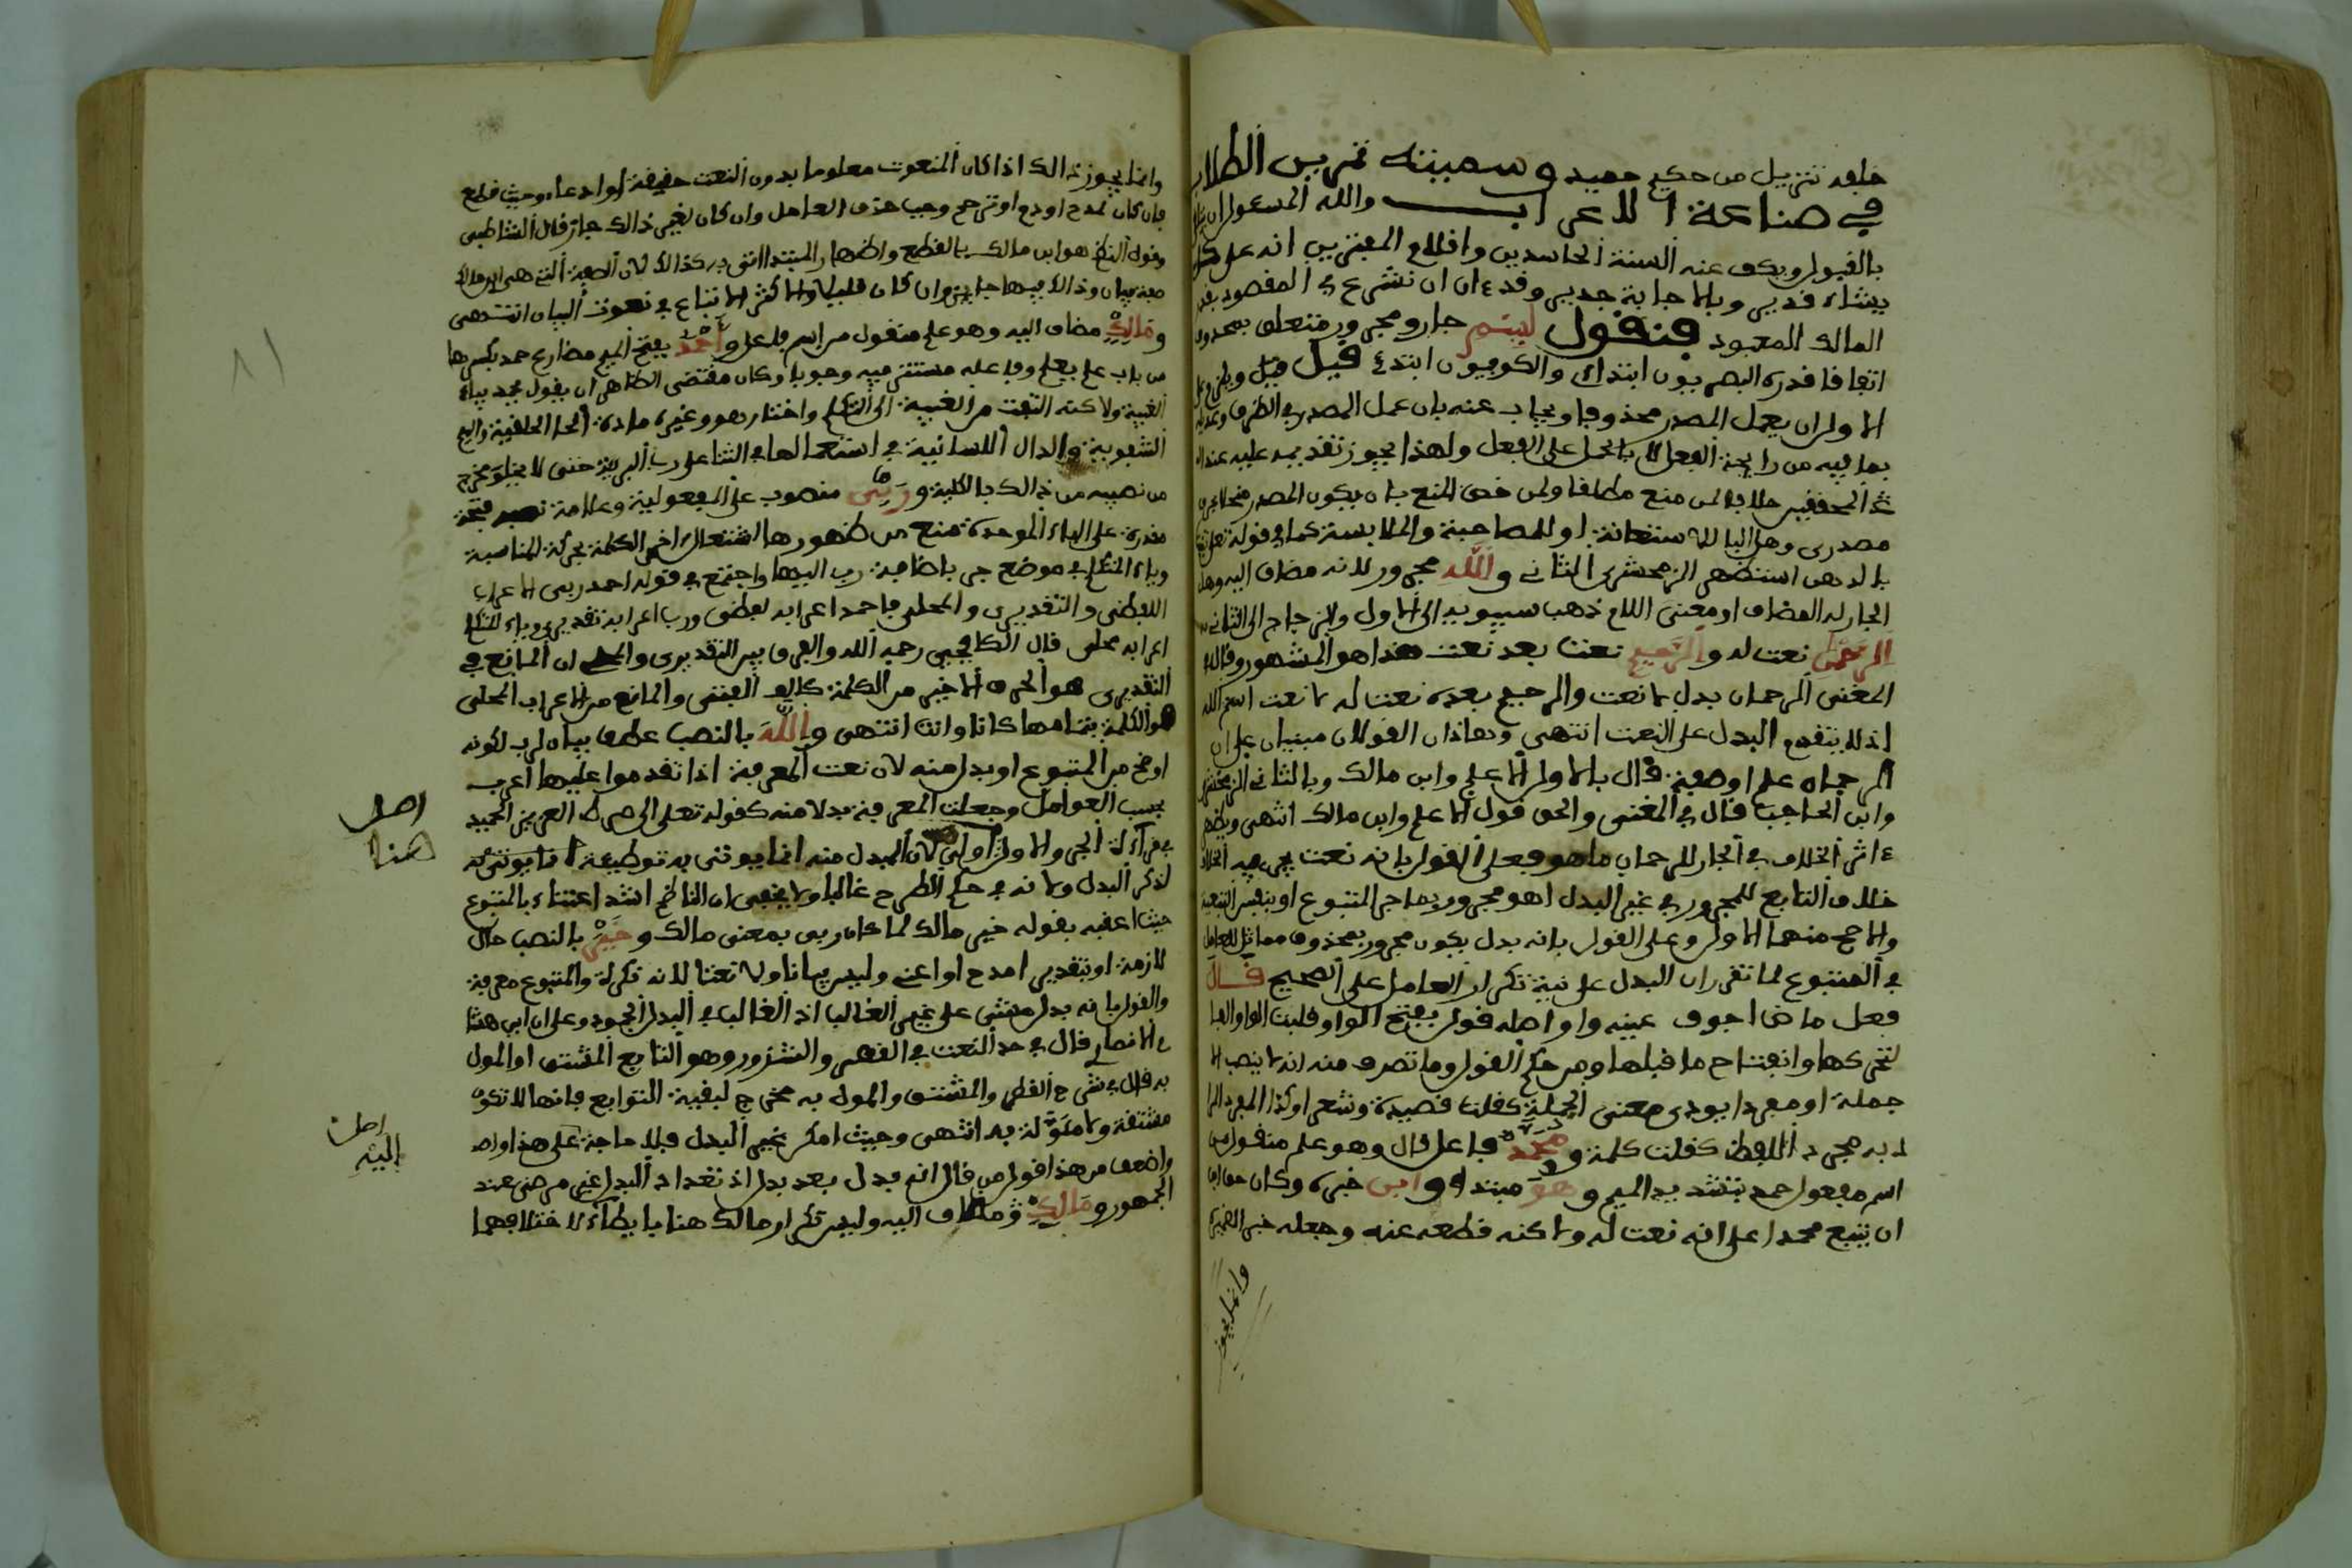 خلفه تنزيل من حكيم حميد وسميته تمرين الطلاب
في صناعة الاعراب والله المسئول ان
بالقبول ويكف عنه السنة الحاسدين واقلام المفترين انه على كل
يشاء قدير وبالاجابة جدير وقد ءان ان نشرع في المقصود بعون
المالك المعبود فنقول لبسم جار ومجرور متعلق بمحذوف
اتفاقا قدره البصريون ابتداي والكوفيون ابتدئ قيل
الاول ان يعمل المصدر محذوفا ويجاب عنه بان عمل المصدر في الظرف
بما فيه من رايحة الفعل لا بالحمل على الفعل ولهذا يجوز تقديمه عليه عند
المحققين خلافا لمن منع مطلقا ولمن خص المنع بان يكون المصدر منحلا بحرف
مصدري وهل البا للاستعانة او للمصاحبة والملابسة كما في قوله تعلى تنبت
بالدهن استظهر الزمخشري الثاني والله مجرور لانه مضاف اليه وهل
الجار له المضاف او معنى اللام ذهب سيبويه الى الاول والزجاج الى الثاني
الرحمن نعت له والرحيم نعت بعد نعت هذا هو المشهور وقال في
المغني الرحمان بدل لا نعت والرحيم بعده نعت له لا نعت اسم الله
اذ لا يتقدم البدل على النعت انتهى وهاذان القولان مبنيان على ان
الرحمان علم او صفة قال بالاول الاعلم وابن مالك وبالثاني الزمخشري
وابن الحاجب قال في المغني والحق قول الاعلم وابن مالك انتهى ويظهر
ءاثر الخلاف في الجار للرحمان ما هو فعلى القول بانه نعت يجري فيه الخلاف
خلاف التابع للمجرور في غير البدل اهو مجرور بما جر المتبوع او بنفس التبعية
والاصح منهما الاول وعلى القول بانه بدل يكون مجرور بمحذوف مماثل للعامل
في المتبوع لما تقرر ان البدل على نية تكرار العامل على الصحيح قال
فعل ماض اجوف عينه واو اصله قول بفتح الواو قلبت الواو الفا
لتحركها وانفتاح ما قبلها ومن حكم القول وما تصرف منه انه لا ينصب الا
جملة او مفردا يودي معنى الجملة كقلت قصيدة وشعرا وكذا المفرد المراد
به مجرد اللفظ كقلت كلمة ومحمد فاعل قال وهو علم منقول من
اسم مفعول حمد بتشديد الميم وهو مبتدا وابن خبره وكان حق ابن
ان يتبع محمدا على انه نعت له ولاكنه قطعه عنه وجعله خبر الضمير
وانما يجوز
وانما يجوز ذالك اذا كان المنعوت معلوما بدون النعت حقيقة او ادعاء وحيث قطع
فان كان لمدح او ذم او ترحم وجب حذف العامل وان كان لغير ذالك جاز قال الشاطبي
وقول الناظم هو ابن مالك بالقطع واظهار المبتدا اتى به كذالك لان الصفة التي هي ابن مالك
صفة بيان وذالك فيها جايز وان كان قليلا والاكثر الاتباع في نعوت البيان انتهى
ومالك مضاف اليه وهو علم منقول من اسم فاعل واحمد بفتح الميم مضارع حمد بكسرها
من باب علم يعلم وفاعله مستتر فيه وجوبا وكان مقتضى الظاهر ان يقول يحمد بياء
الغيبة ولاكنه التفت من الغيبة الى التكلم واختار هو وغيره مادة الحا الحلقية والميم
الشفوية والدال اللسانية في استعمالها في الثنا على رب البرية حتى لا يخلو مخرج
من نصيبه من ذالك بالكلية وربي منصوب على المفعولية وعلامة نصبه فتحة
مقدرة على الباء الموحدة منع من ظهورها اشتغال اخر الكلمة بحركة المناسبة
وياء المتكلم في موضع جر باضافة رب اليها واجتمع في قوله احمد ربي الاعراب
اللفظي والتقديري والمحلي فاحمد اعرابه لفظي ورب اعرابه تقديري وياء المتكلم
اعرابه محلي قال الكافيجي رحمه الله والفرق بين التقديري والمحلي ان المانع في
التقديري هو الحرف الاخير من الكلمة كالف الفتى والمانع من الاعراب المحلي
هو الكلمة بتمامها كانا وانت انتهى والله بالنصب عطف بيان لرب لكونه
اوضح من المتبوع او بدل منه لان نعت المعرفة اذا تقدم عليها اعرب
بحسب العوامل وجعلت المعرفة بدلا منه كقوله تعلى الى صراط العزيز الحميد
في قراءة الجر والاول اولى لان المبدل منه انما يوتى به توطية
لذكر البدل ولانه في حكم الطرح غالبا ولا يخفى ان الناظم اشد اعتناء بالمتبوع
حيث اعقبه بقوله خير مالك لما كان ربي بمعنى مالك وخير بالنصب حال
لازمة او بتقدير امدح او اعني وليس بيانا ولا نعتا لانه نكرة والمتبوع معرفة
والقول بانه بدل مشى على غير الغالب اذ الغالب في البدل الجمود وعلى ان ابن هشام
الانصاري قال في حد النعت في القطر والشذور وهو التابع المشتق او المول
به قال في شرح القطر والمشتق والمول به مخرج لبقية التوابع فانها لا تكون
مشتقة ولا مولة به انتهى وحيث امكن غير البدل فلا حاجة على هذا
واضعف من هذا قول من قال انه بدل بعد بدل اذ تعداد البدل غير مرضي عند
الجمهور ومالك مضاف اليه وليس تكرار مالك هنا بايطاء لاختلافهما
اصل
هنا
اصلـ
البيه